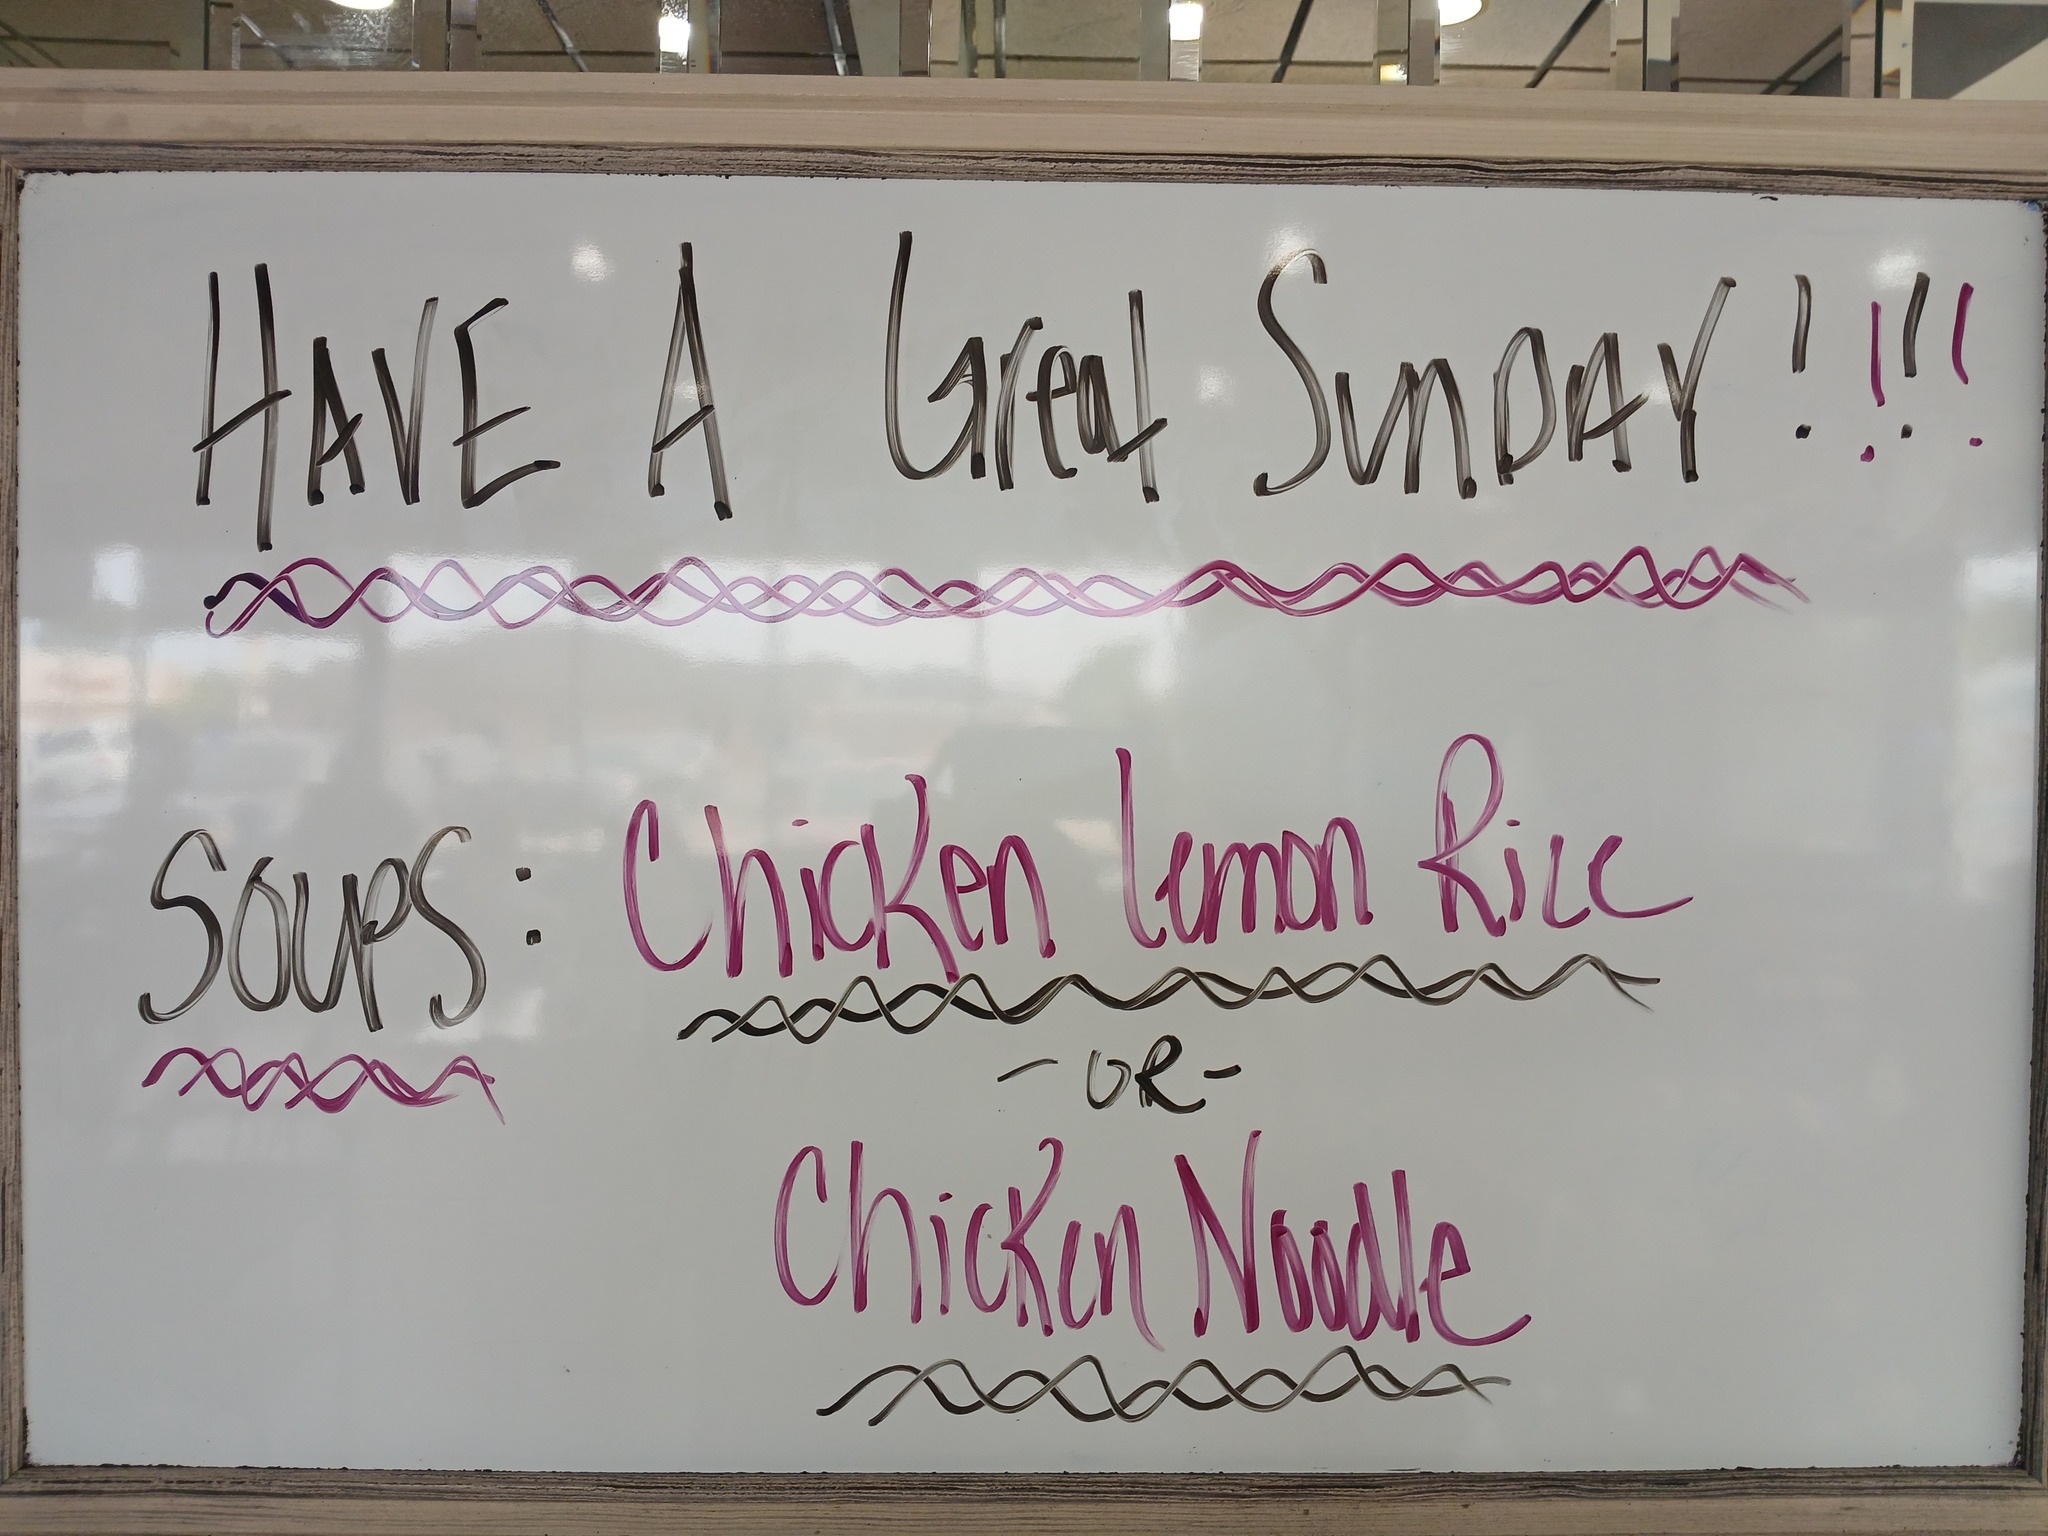 HAVE A Great SunDAY !!!!
SOUPS: ChicKen Lemon Rice
- OR -
ChicKen Noodle